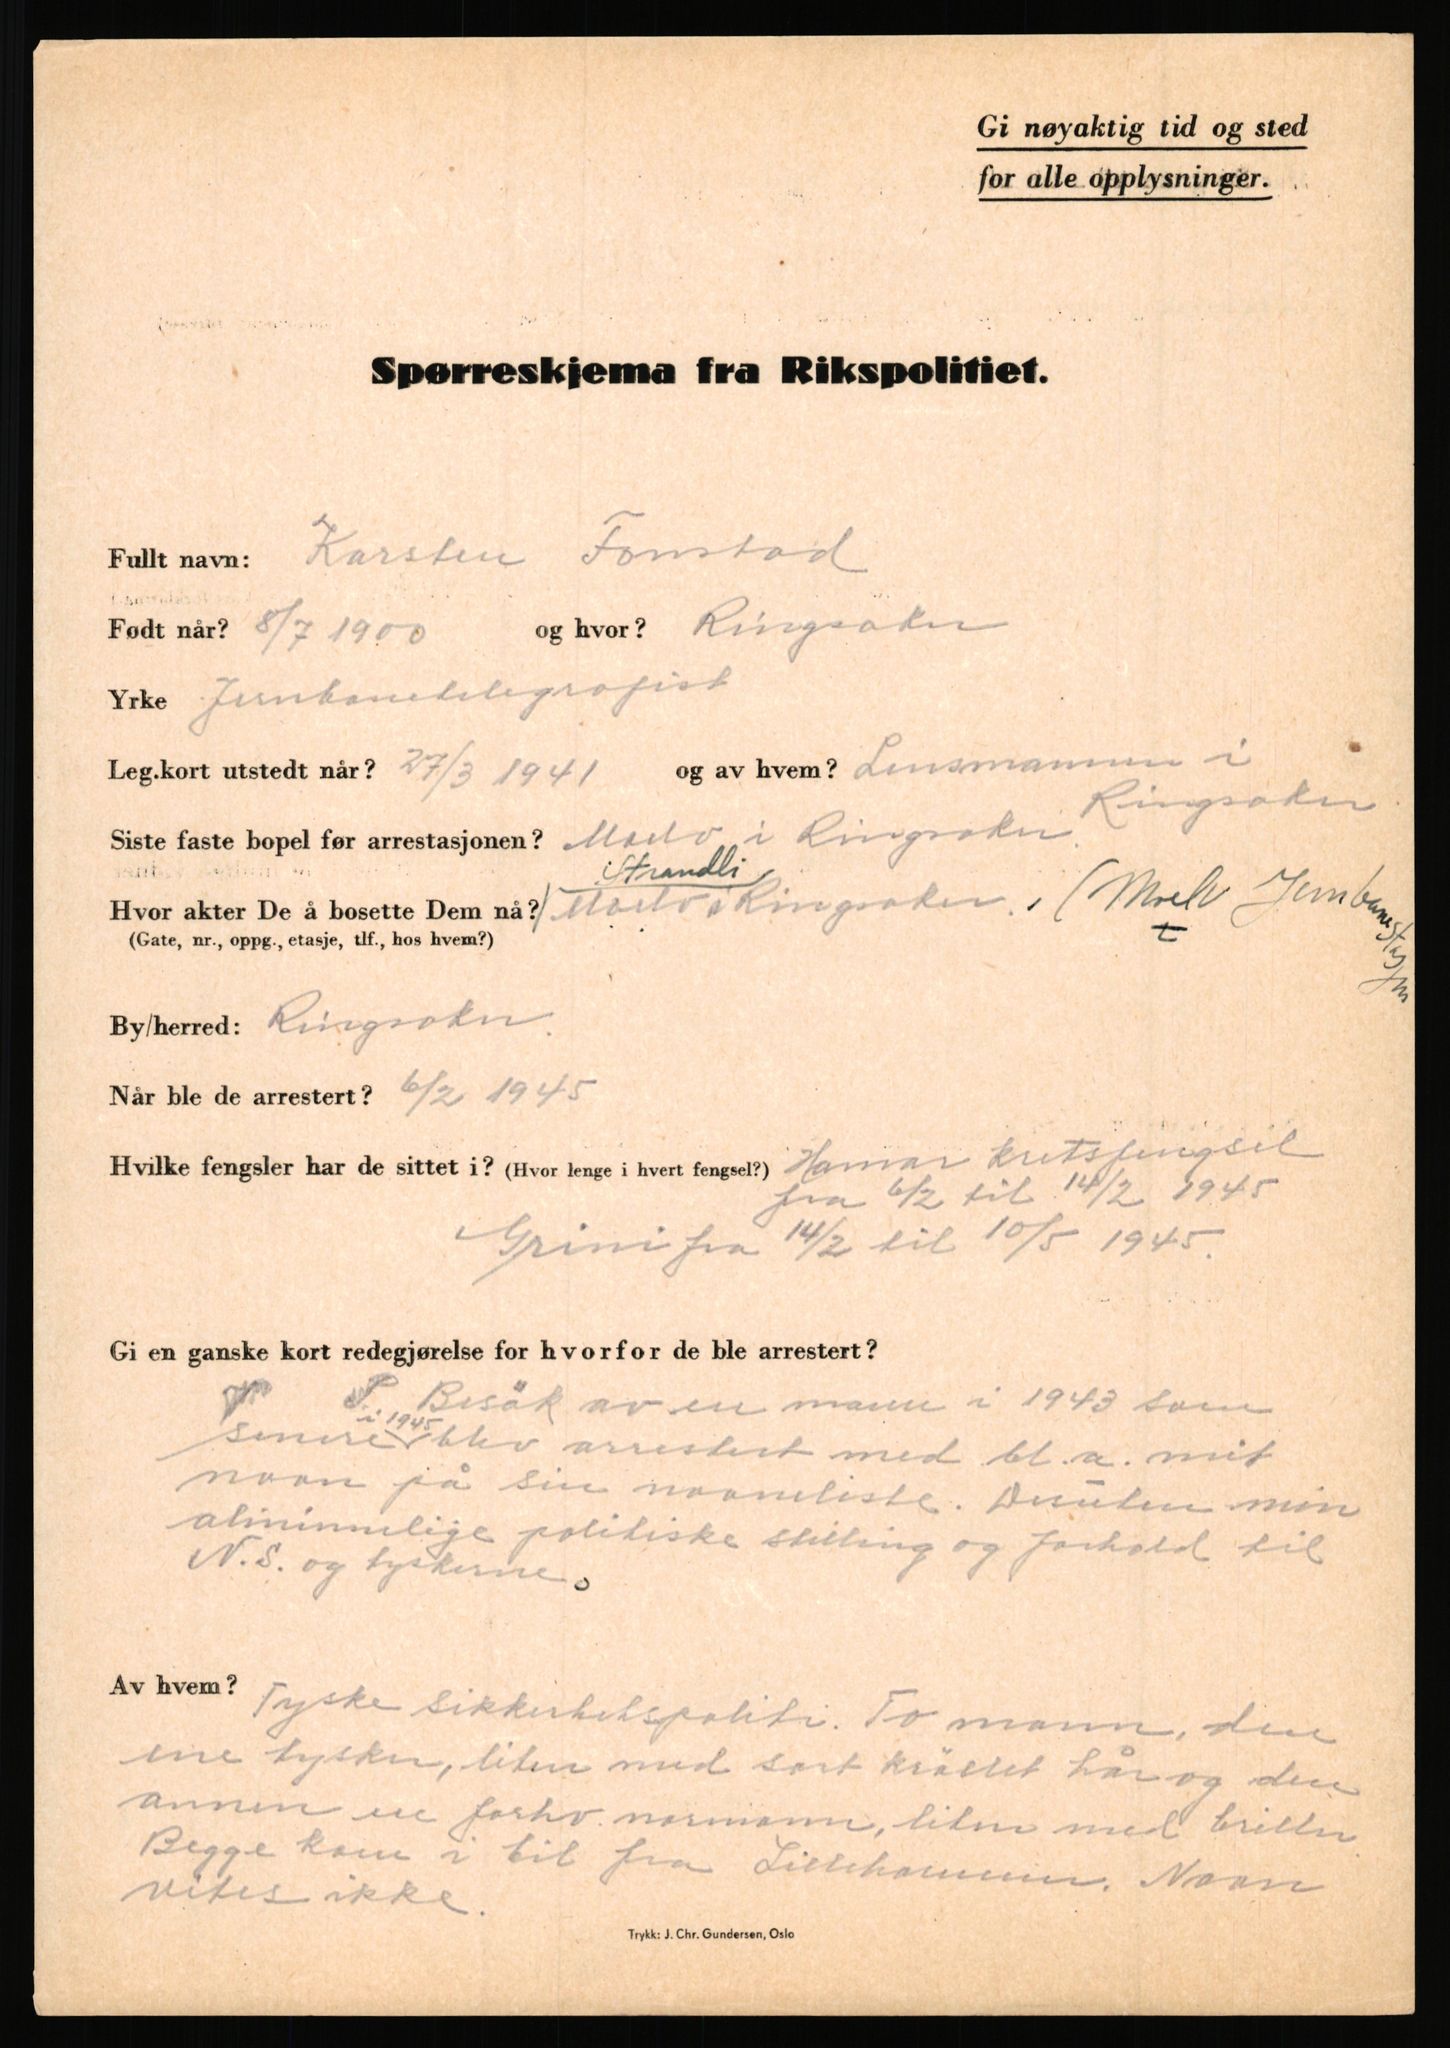 Gi nøyaktig tid og sted
for alle opplysninger.
Spørreskjema fra Rikspolitiet.
Fullt navn: Karsten Fonstad
Født når? 8/7 1900 og hvor? Ringsaker
Yrke Jernbanetelegrafist
Leg.kort utstedt når? 27/3 1941 og av hvem? Lensmannen i
Ringsaker
Siste faste bopel før arrestasjonen? Moelv i Ringsaker.
Strandli
Hvor akter De å bosette Dem nå? Moelv i Ringsaker. (Moelv Jernbanestasjon
(Gate, nr., oppg., etasje, tlf., hos hvem?)
By/herred: Ringsaker.
Når ble de arrestert? 6/2 1945
Hvilke fengsler har de sittet i? (Hvor lenge i hvert fengsel?) Hamar kretsfengsel
fra 6/2 til 14/2 1945
Grini fra 14/2 til 10/5 1945.
Gi en ganske kort redegjørelse for hvorfor de ble arrestert?
Besök av en mann i 1943 som
i 1945
senere blev arrestert med bl.a. mit
navn på sin navneliste. Desuten min
alminnelige politiske stilling og forhold til
N.S. og tyskerne.
Av hvem? Tyske sikkerhetspoliti. To mann, den
ene tysker, liten med sort krøllet hår og den
annen en forhv. normann, liten med briller
Begge kom i bil fra Lillehammer. Navn
vites ikke.
Trykk: J. Chr. Gundersen, Oslo